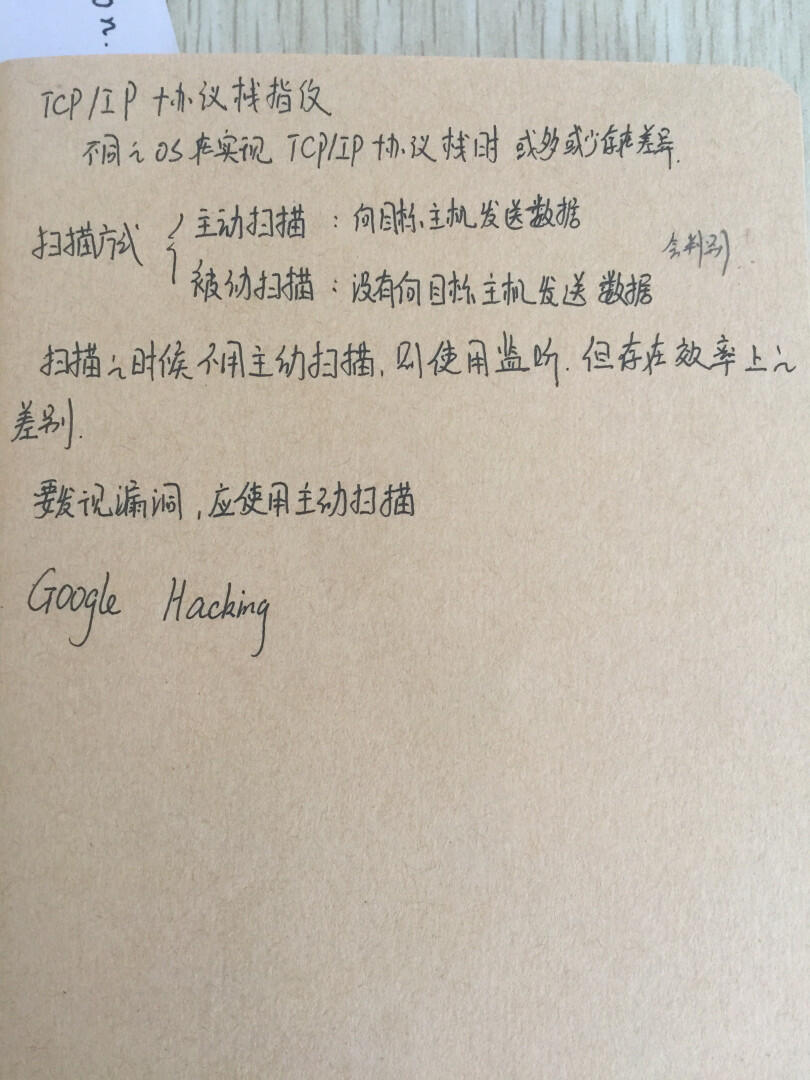 on.
TCP/IP 协议栈指纹
不同之OS在实现 TCP/IP 协议栈时 或多或少存在差异.
扫描方式 { 主动扫描 : 向目标主机发送数据
会判别
被动扫描 : 没有向目标主机发送数据
扫描之时候不用主动扫描, 则使用监听. 但存在效率上之
差别.
要发现漏洞, 应使用主动扫描
Google Hacking